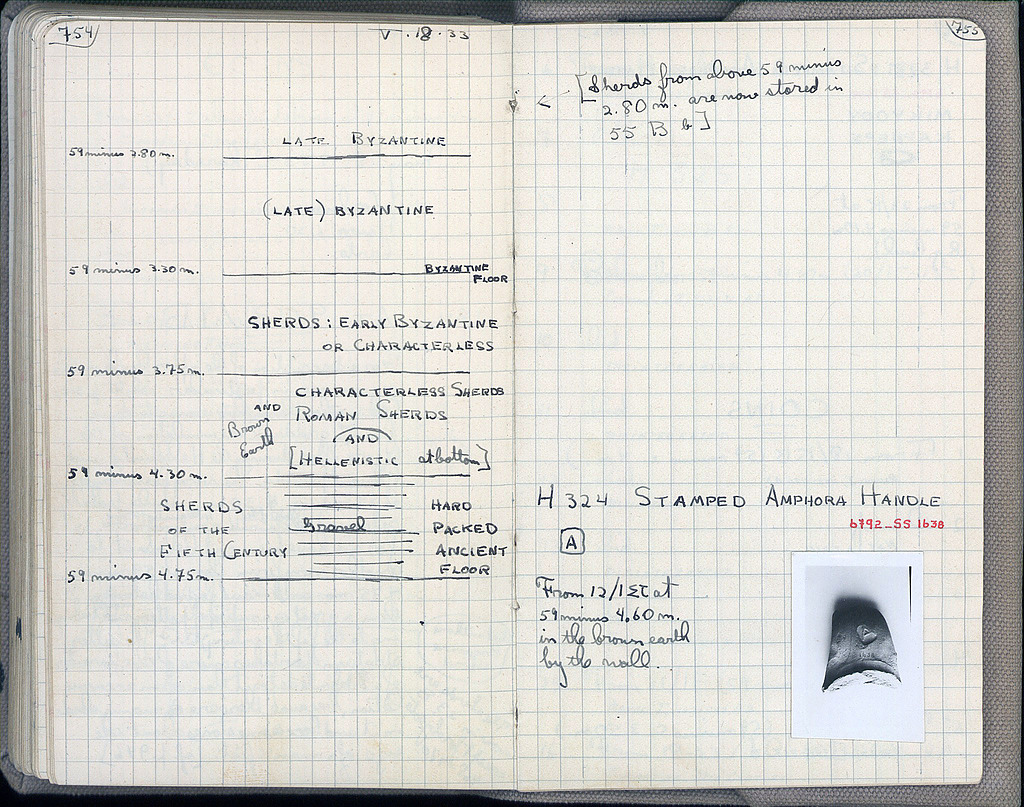 754
V.18.33
LATE BYZANTINE
59 minus 2.80 m.
(LATE) BYZANTINE
59 minus 3.30 m.
BYZANTINE
FLOOR
SHERDS: EARLY BYZANTINE
OR CHARACTERLESS
59 minus 3.75 m.
CHARACTERLESS SHERDS
AND ROMAN SHERDS
Brown
Earth
AND
[HELLENISTIC at bottom]
59 minus 4.30 m.
SHERDS
OF THE
FIFTH CENTURY
Gravel
HARD
PACKED
ANCIENT
FLOOR
59 minus 4.75 m.
755
< [Sherds from above 59 minus
2.80 m. are now stored in
55 B b]
H 324 STAMPED AMPHORA HANDLE
6792_SS 1638
A
From 12/ΙΣΤ at
59 minus 4.60 m.
in the brown earth
by the wall.